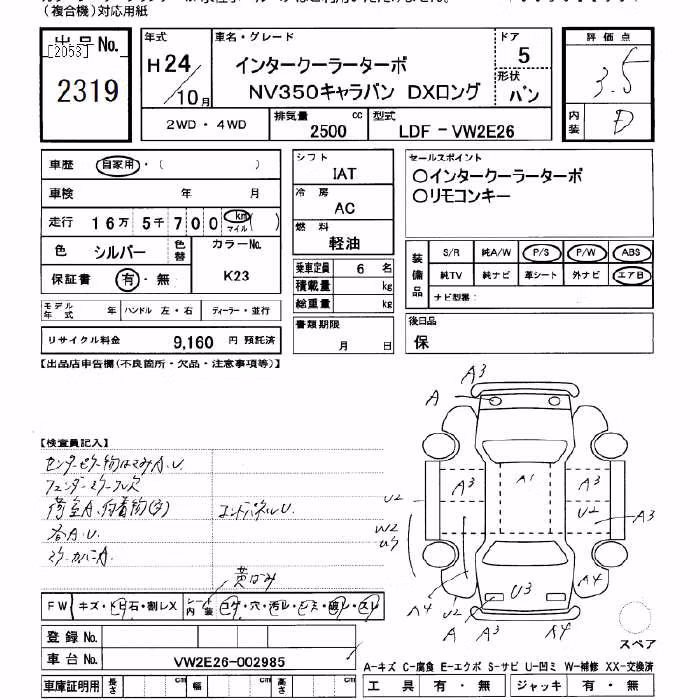 （複合機）対応用紙
出品No.
[2053]
2319
年式
H24/10月
車名・グレード
インタークーラーターボ
NV350キャラバン DXロング
ドア
5
形状
バン
評価点
3.5
内装
D
2WD・4WD
排気量 2500 cc
型式 LDF-VW2E26
車歴 自家用・( )
車検 年 月
走行 16万 5千 700 km マイル ( )
色 シルバー 色替
カラーNo. K23
保証書 有・無
モデル年式 年 ハンドル 左・右 ディーラー・並行
リサイクル料金 9,160 円 預託済
シフト IAT
冷房 AC
燃料 軽油
乗車定員 6 名
積載量 kg
総重量 kg
書類期限 月 日
セールスポイント
○インタークーラーターボ
○リモコンキー
装備品
S/R 純A/W P/S P/W ABS
純TV 純ナビ 革シート 外ナビ エアB
ナビ型番：
後日品
保
【出品店申告欄(不良箇所・欠品・注意事項等)】
【検査員記入】
センターピラー
A.U.
荷室A. (多)
各A.U.
A.
コンパネルU.
A3
A
A3 A1 A3
U2 U2 A3
W2
U3
A4 U2 A4
A A3 A4
FW キズ・トビ石・割レX シート内装 コゲ・穴・汚レ・シミ・破レ・スレ
登録No.
車台No. VW2E26-002985
車庫証明用 長さ cm 幅 cm 高さ cm
スペア
A-キズ C-腐食 E-エクボ S-サビ U-凹ミ W-補修 XX-交換済
工具 有・無 ジャッキ 有・無